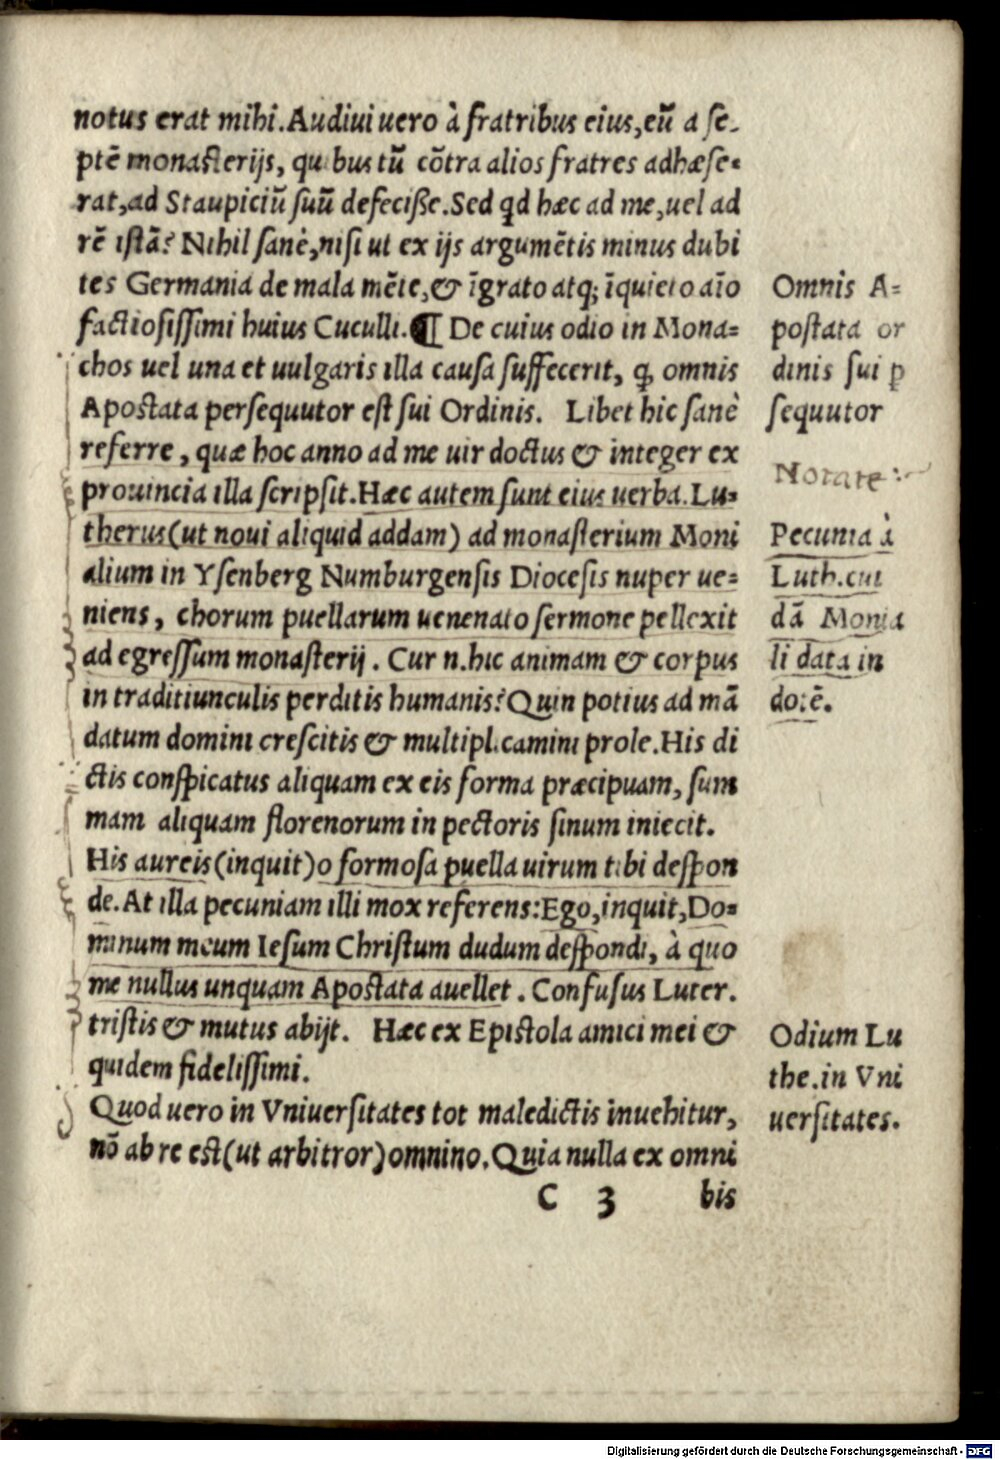 notus erat mihi. Audiui uero à fratribus eius, eū a se-
ptē monasterijs, quibus tū cōtra alios fratres adhæse-
rat, ad Staupiciū suū defecisse. Sed qd hæc ad me, uel ad
rē istā? Nihil sanè, nisi ut ex ijs argumētis minus dubi
tes Germania de mala mēte, & īgrato atq; īquieto aīo
factiosissimi huius Cuculli. ¶ De cuius odio in Mona=
chos uel una et uulgaris illa causa suffecerit, ꝙ omnis
Apostata persequutor est sui Ordinis. Libet hic sanè
referre, quæ hoc anno ad me uir doctus & integer ex
prouincia illa scripsit. Hæc autem sunt eius uerba. Lu=
therus (ut noui aliquid addam) ad monasterium Moni
alium in Ysenberg Numburgensis Diocesis nuper ue=
niens, chorum puellarum uenenato sermone pellexit
ad egressum monasterij. Cur n. hic animam & corpus
in traditiunculis perditis humanis? Quin potius ad mā
datum domini crescitis & multiplicamini prole. His di
ctis conspicatus aliquam ex eis forma præcipuam, sum
mam aliquam florenorum in pectoris sinum iniecit.
His aureis (inquit) o formosa puella uirum tibi despon
de. At illa pecuniam illi mox referens: Ego, inquit, Do=
minum meum Iesum Christum dudum despondi, à quo
me nullus unquam Apostata auellet. Confusus Luter.
tristis & mutus abijt. Hæc ex Epistola amici mei &
quidem fidelissimi.
Quod uero in Vniuersitates tot maledictis inuehitur,
nō ab re est (ut arbitror) omnino. Quia nulla ex omni
C 3 bis
Omnis A=
postata or
dinis sui ꝑ
sequutor
Notate
Pecunia à
Luth. cui
dā Monia
li data in
dotē.
Odium Lu
the. in Vni
uersitates.
Digitalisierung gefördert durch die Deutsche Forschungsgemeinschaft - DFG